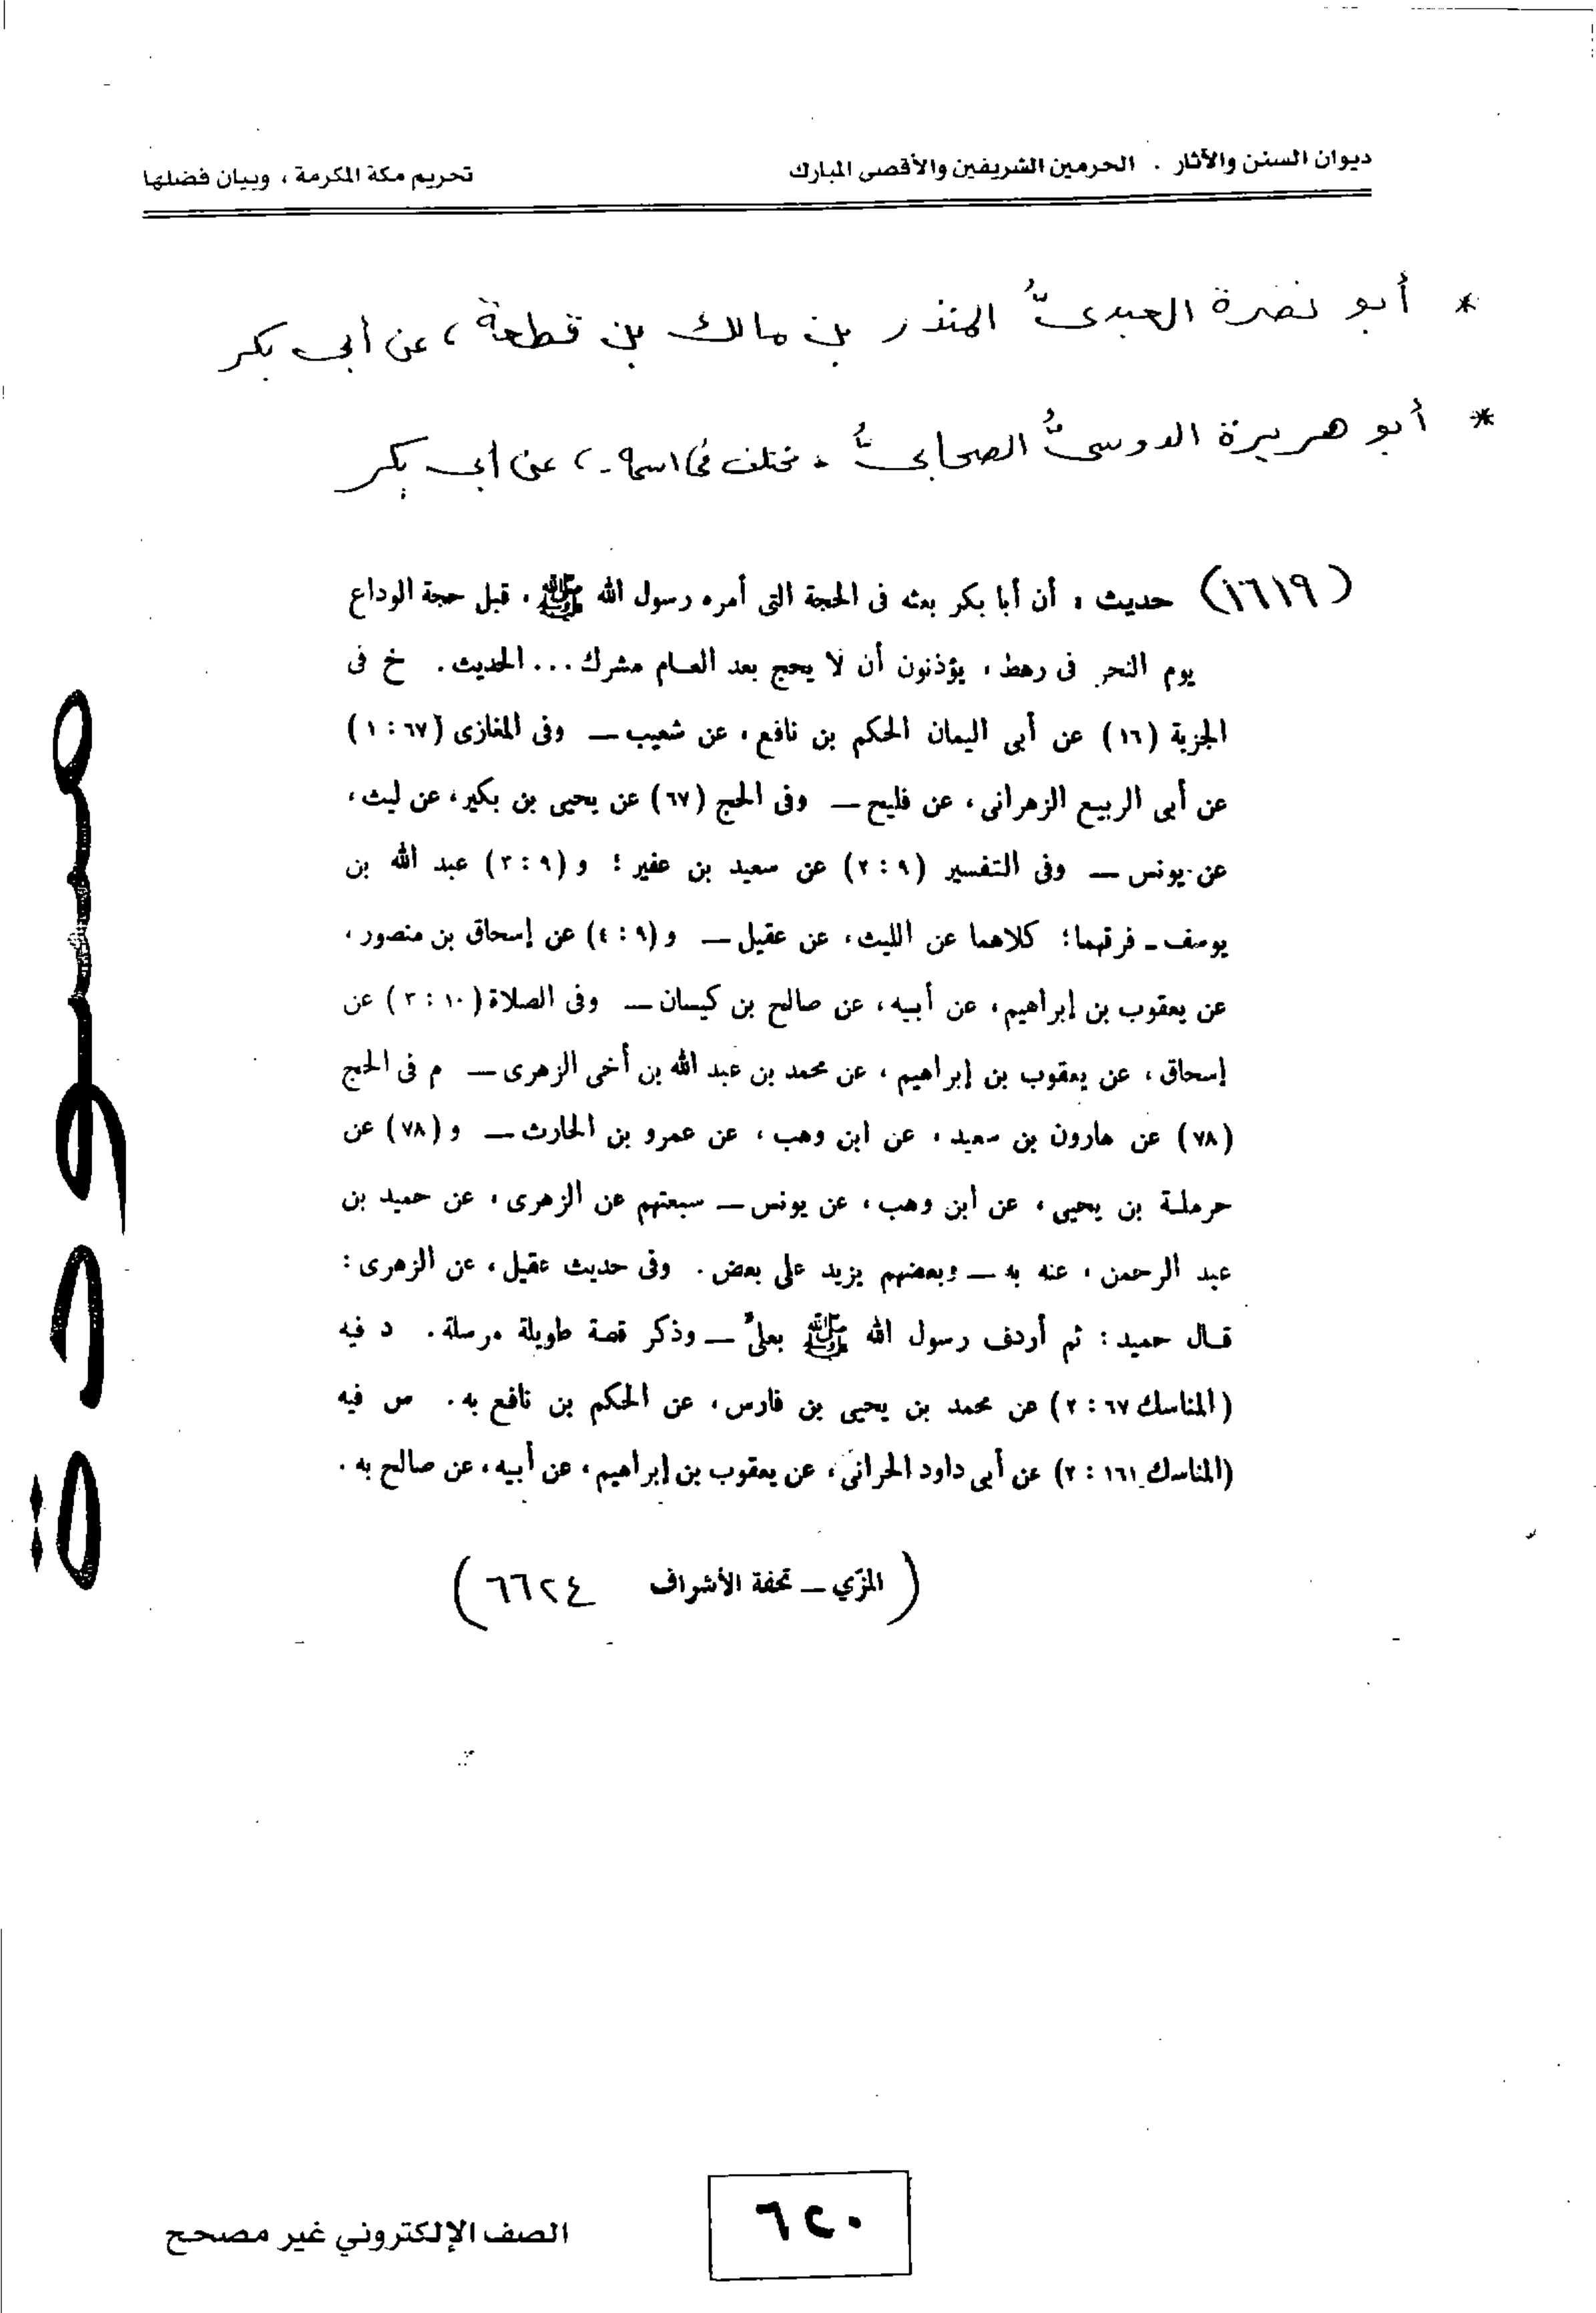 ديوان السنن والآثار . الحرمين الشريفين والأقصى المبارك
تحريم مكة المكرمة ، وبيان فضلها
* أبو نضرة العبدىُّ المنذر بن مالك بن قطعة ، عن أبى بكر
* أبو هريرة الدوسىُّ الصحابىُّ - مختلف فى اسمه - ، عن أبى بكر
(١٦١٩) حديث : أن أبا بكر بعثه فى الحجة التى أمره رسول الله ﷺ ، قبل حجة الوداع
يوم النحر فى رهط ، يؤذنون أن لا يحج بعد العام مشرك ... الحديث . خ فى
الجزية (١٦) عن أبى اليمان الحكم بن نافع ، عن شعيب — وفى المغازى (٦٧ : ١)
عن أبى الربيع الزهرانى ، عن فليح — وفى الحج (٦٧) عن يحيى بن بكير ، عن ليث ،
عن يونس — وفى التفسير (٩ : ٢) عن سعيد بن عفير ؛ و (٩ : ٣) عبد الله بن
يوسف - فرقهما ؛ كلاهما عن الليث ، عن عقيل — و (٩ : ٤) عن إسحاق بن منصور ،
عن يعقوب بن إبراهيم ، عن أبيه ، عن صالح بن كيسان — وفى الصلاة (١٠ : ٣) عن
إسحاق ، عن يعقوب بن إبراهيم ، عن محمد بن عبد الله بن أخى الزهرى — م فى الحج
(٧٨) عن هارون بن سعيد ، عن ابن وهب ، عن عمرو بن الحارث — و (٧٨) عن
حرملة بن يحيى ، عن ابن وهب ، عن يونس — سبعتهم عن الزهرى ، عن حميد بن
عبد الرحمن ، عنه به — وبعضهم يزيد على بعض . وفى حديث عقيل ، عن الزهرى :
قال حميد : ثم أردف رسول الله ﷺ بعلىّ — وذكر قصة طويلة مرسلة . د فيه
(المناسك ٦٧ : ٢) عن محمد بن يحيى بن فارس ، عن الحكم بن نافع به . س فيه
(المناسك ١٦١ : ٢) عن أبى داود الحرانى ، عن يعقوب بن إبراهيم ، عن أبيه ، عن صالح به .
(المزّي — تحفة الأشراف ٦٦٢٤)
مسودة
٦٢٠
الصف الإلكتروني غير مصحح